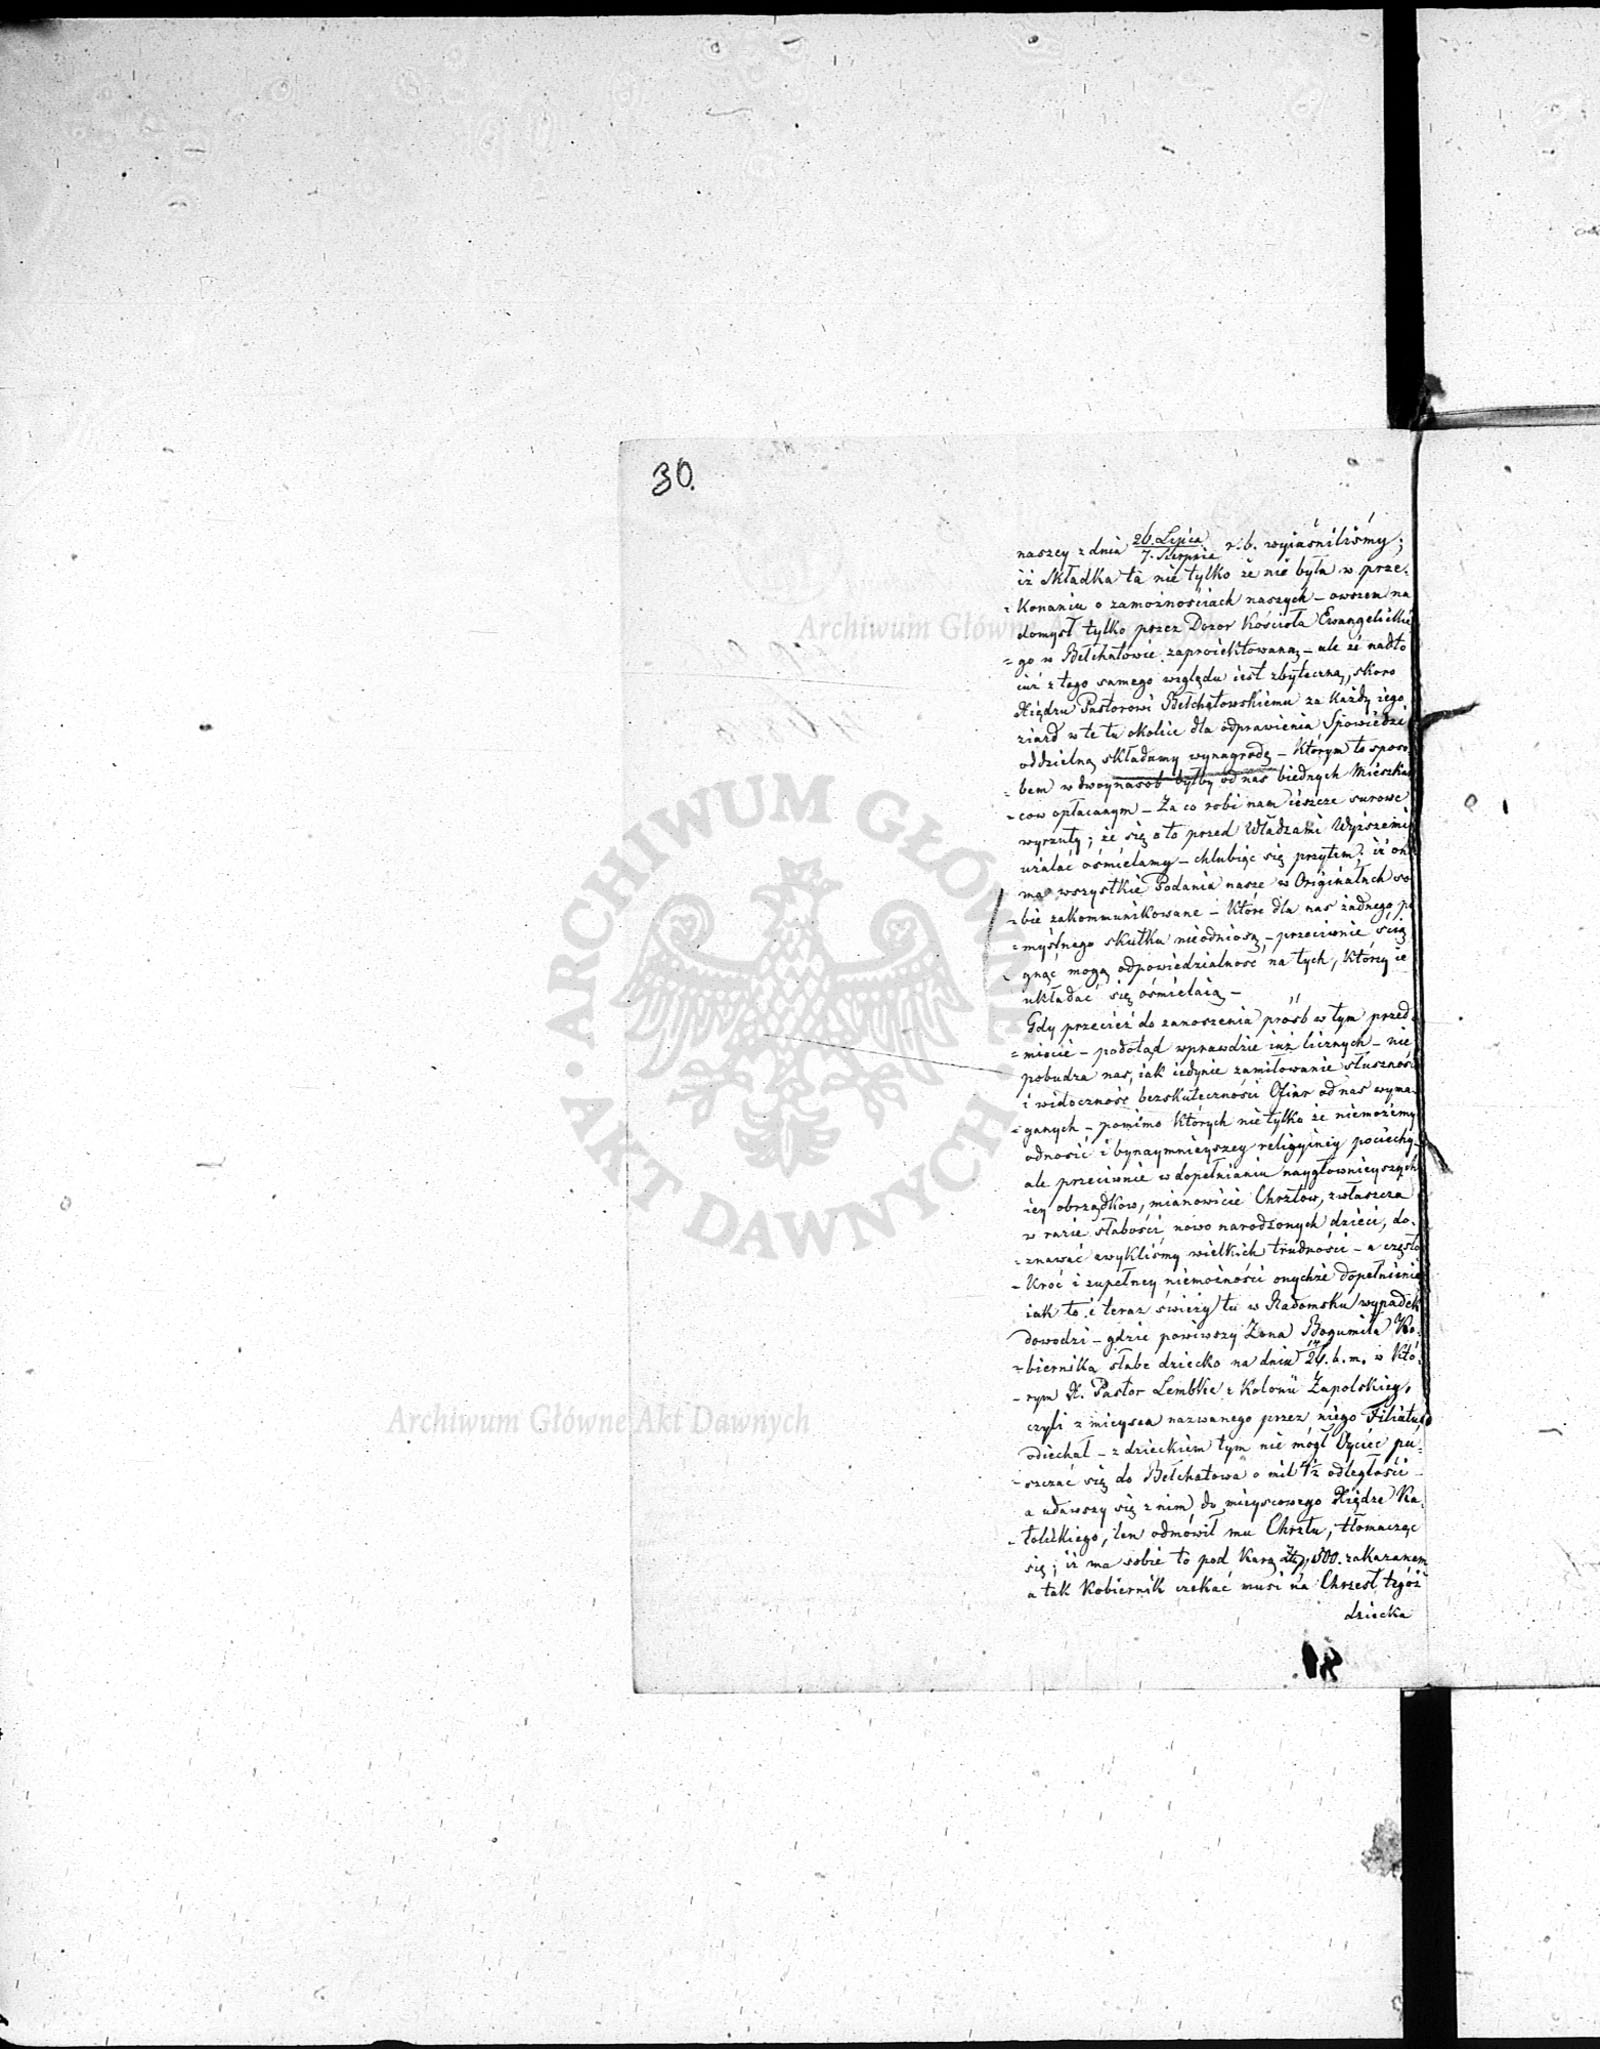 30.
naszey z dnia 26. Lipca / 7. Sierpnia r. b. wyiaśniliśmy;
iż Składka ta nie tylko że nie była w prze-
=konaniu o zamożnościach naszych – owszem na
domysł tylko przez Dozor Kościoła Ewangelickie
=go w Bełchatowie zaproiektowaną – ale że nadto
iuż z tego samego względu iest zbyteczną, skoro
Xiędzu Pastorowi Bełchatowskiemu za każdy iego
ziazd w te tu okolice dla odprawienia Spowiedzi
oddzielną składamy wynagrodę – którym to sposo-
=bem w dwoynasob byłby od nas biednych Mieszkań
=cow opłacanym – Za co robi nam ieszcze surowe
wyrzuty; że się o to przed Władzami Wyższemi
użalać ośmielamy – chlubiąc się przytem; iż on
ma wszystkie Podania nasze w Originałach so
=bie zakommunikowane – które dla nas żadnego po
=myślnego skutku nieodniosą – przeciwnie ścią
gnąć mogą odpowiedzialność na tych, którzy ie
układać się ośmielaią –
Gdy przecież do zanoszenia próśb w tym przed
=miocie – podotąd wprawdzie iuż licznych – nie
pobudza nas, iak iedynie zamiłowanie słuszności
i widoczność bezskuteczności Ofiar od nas wyma-
=ganych – pomimo których nie tylko że niemożemy
odnosić i bynaymnieyszey religiyney pociechy –
ale przeciwnie w dopełnianiu naygłownieyszych
iey obrządkow, mianowicie Chrztow, zwłaszcza
w razie słabości nowo narodzonych dzieci, do-
=znawać zwykliśmy wielkich trudności – a często
=kroć i zupełney niemożności onychże dopełnienia
iak to i teraz świeży tu w Radomsku wypadek
dowodzi – gdzie powiwszy Żona Bogumiła Ko-
=biernika słabe dziecko na dniu 24. b. m. w któ-
=rym X. Pastor Lembke z Kolonii Zapolskiey,
czyli z mieysca nazwanego przez niego Filiału
odiechał – z dzieckiem tym nie mógł Oyciec pu-
=szczać się do Bełchatowa o mil 4½ odległości –
a udawszy się z nim do mieyscowego Xiędza Ka-
=tolickiego, ten odmówił mu Chrztu, tłomacząc
się; iż ma sobie to pod karą Złp. 500. zakazanem
a tak Kobiernik czekać musi na Chrzest tegoż
dziecka
Archiwum Główne Akt Dawnych
ARCHIWUM GŁÓWNE · AKT DAWNYCH ·
Archiwum Główne Akt Dawnych